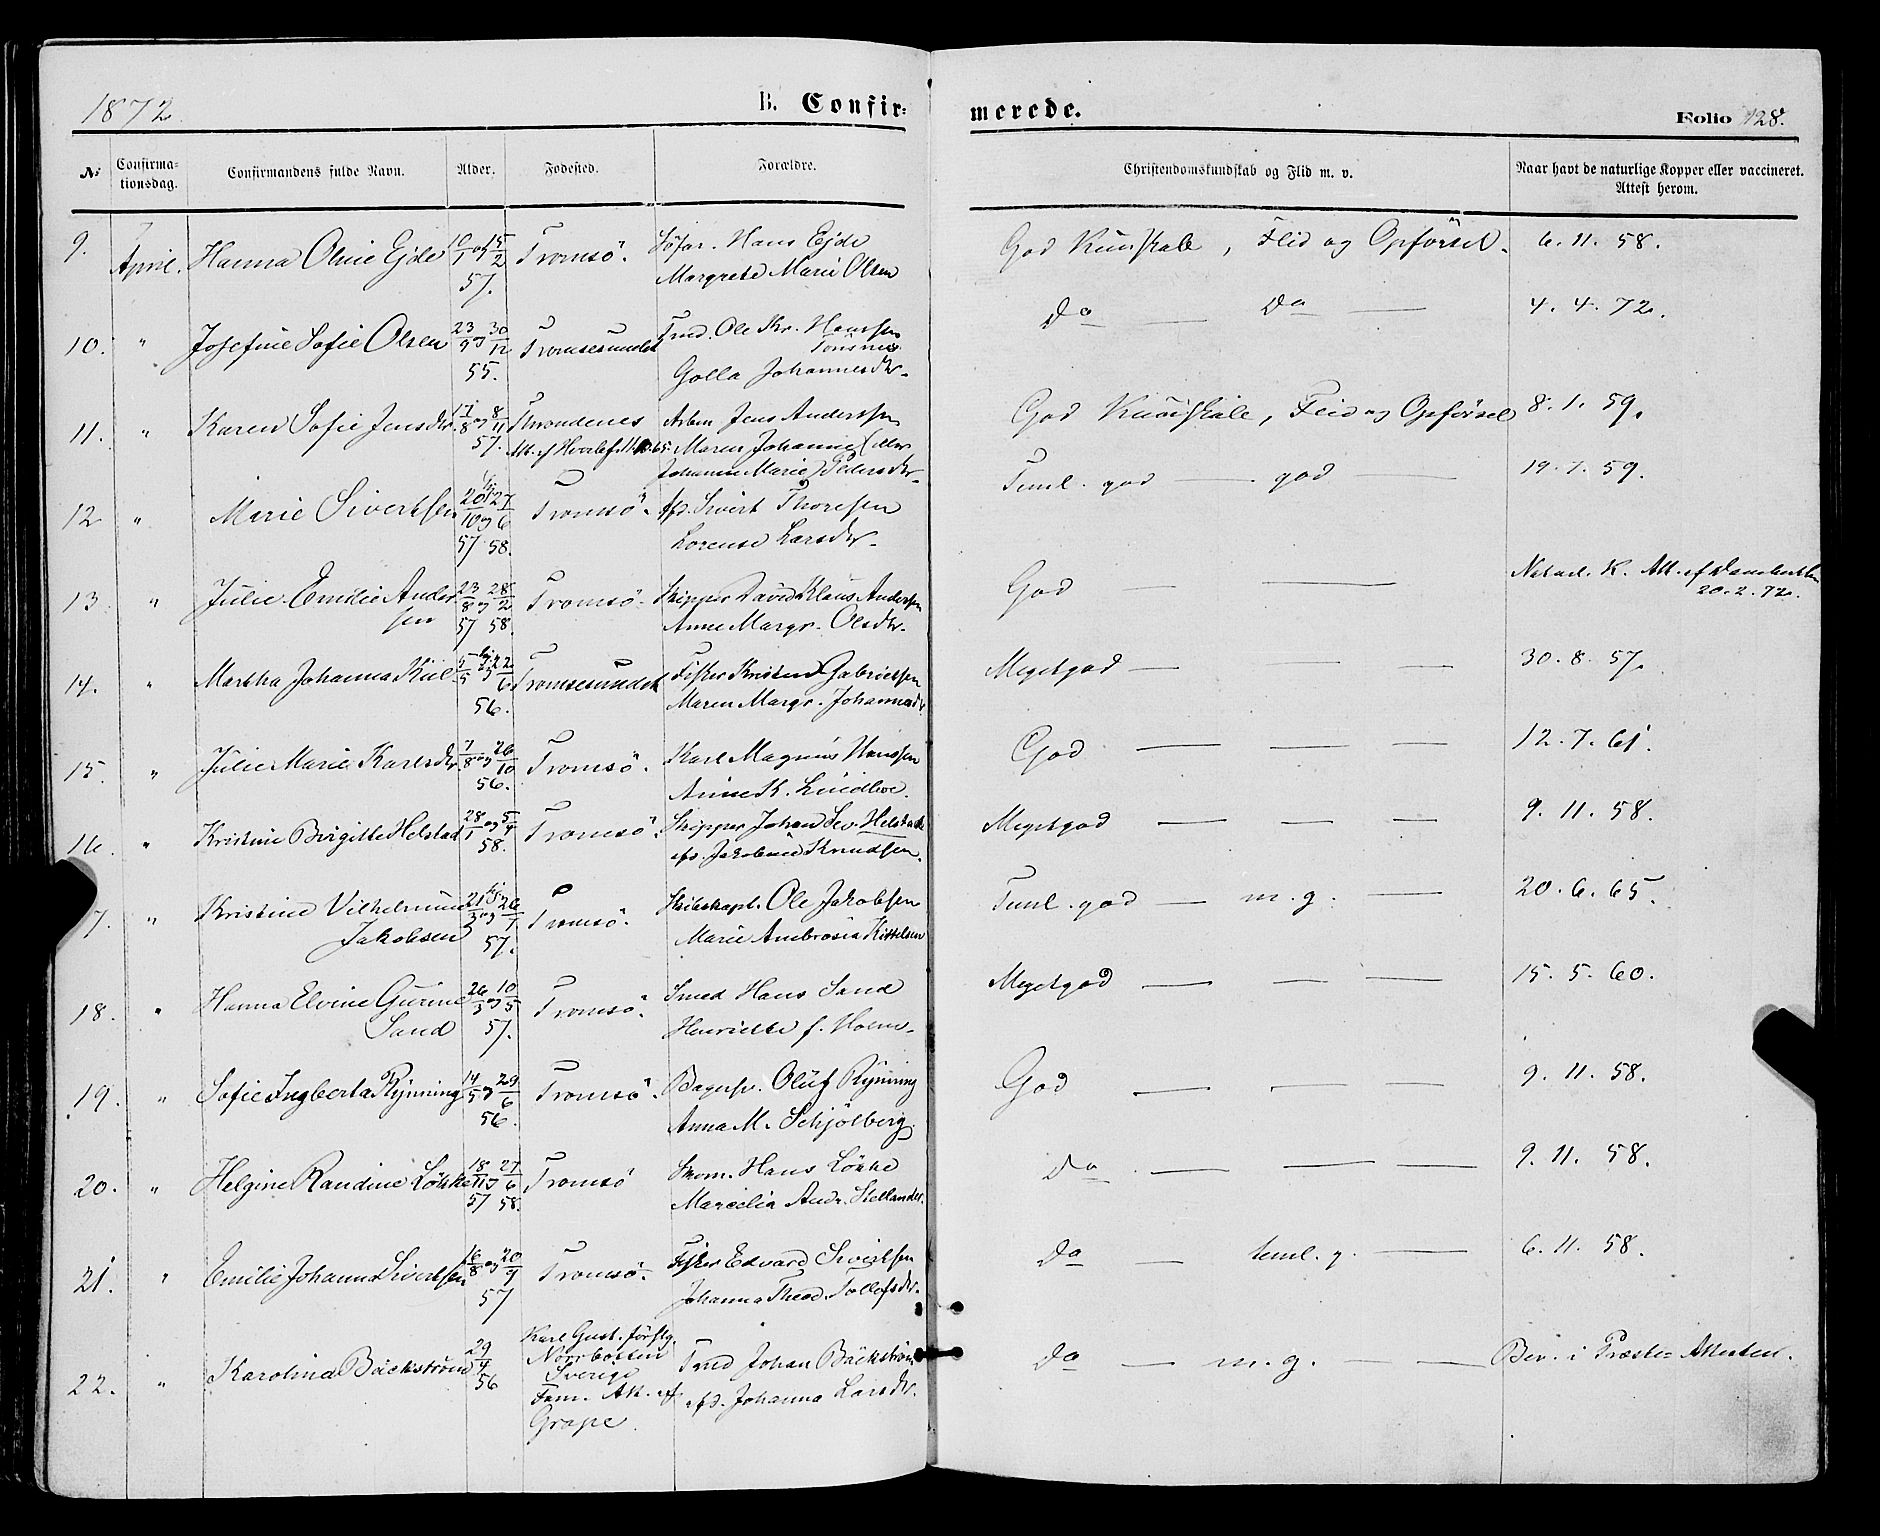 1872
B. Confir-
merede.
Folio 128.
No
Confirma-
tionsdag.
Confirmandens fulde Navn.
Alder.
Fødested.
Forældre.
Christendomskundskab og Flid m. v.
Naar havt de naturlige Kopper eller vaccineret.
Attest herom.
9. April. Hanna Oline Ejde 10/1 og 15/2 57. Tromsö. Söfar. Hans Ejde
Margrete Marie Olsen
God Kundskab, Flid og Opförsel. 6. 11. 58.
10. " Josefine Sofie Olsen 23/9 og 30/12 55. Tromsesundet Tmd. Ole Kr. Hanssen
Tönsnes
Golla Johannesdtr.
Do — Do — 4. 4. 72.
11. " Karen Sofie Jensdtr. 17/8 og 8/11 57. Throndenes Arbm Jens Anderssen
Maren Johanne (eller
Johanna Marie) Pedersdtr.
God Kundskab, Flid og Opförsel 8. 1. 59.
12 " Marie Sivertsen 20/10 57 og 27/6 58. Tromsö. Sivert Thoresen
Lorense Larsdtr.
Teml. god — god — 19. 7. 59.
13 " Julie Emilie Ander
sen 23/8 57 og 28/2 58. Tromsö. Skipper David Klaus Andersen
Anne Margr. Olsdtr.
God — — Naturl. K. Att. af
20. 2. 72.
14. " Martha Johanna Kiil 5/5 og 22/6 56. Tromsesundet Fisker Kristen Gabrielsen
Maren Margr. Johannesd.
Megetgod — — — 30. 8. 57.
15. " Julie Marie Karlsdtr. 7/8 og 26/10 56. Tromsö. Karl Magnus Hanssen
Anne K. Lindlöve.
God — — — 12. 7. 61.
16. " Kristine Birgitte Helstad 28/1 og 5/4 58. Tromsö. Skipper Johan Sev. Helstad
Jakobine Knudsen.
Megetgod — — — 9. 11. 58.
17. " Kristine Vilhelmine
Jakobsen 21/3 og 26/7 57. Tromsö. Ole Jakobsen
Marie Ambrosia Kittelsen
Teml. god — m. g. — 20. 6. 65.
18. " Hanna Elvine Gurine
Sand 26/3 og 10/5 57. Tromsö. Smed Hans Sand
Henriette f. Holm.
Megetgod — — — 15. 5. 60.
19. " Sofie Ingberta Rynning 14/5 og 29/6 56. Tromsö. Bagersv. Oluf Rynning
Anna M. Schjölberg.
God — — 9. 11. 58.
20. " Helgine Randine Lökke 18/11 57 og 27/6 58. Tromsö Skom. Hans Lökke
Marcelia Andr. Stellander.
Do. — — — 9. 11. 58.
21. " Emilie Johanna Sivertsen 16/8 og 20/9 57 Tromsö. Fisker Edvard Sivertsen
Johanna Theod. Tollefsdtr.
Do — teml. g. — 6. 11. 58.
22. " Karolina Bäckström 29/4 56 Karl Gust. försg.
Norrbotten
Sverige
Fem. Att. af
Grape. Tmd Johan Bäckström
Johanna Larsdtr.
Do — m. g. — — Bev. i Præste-Attesten.